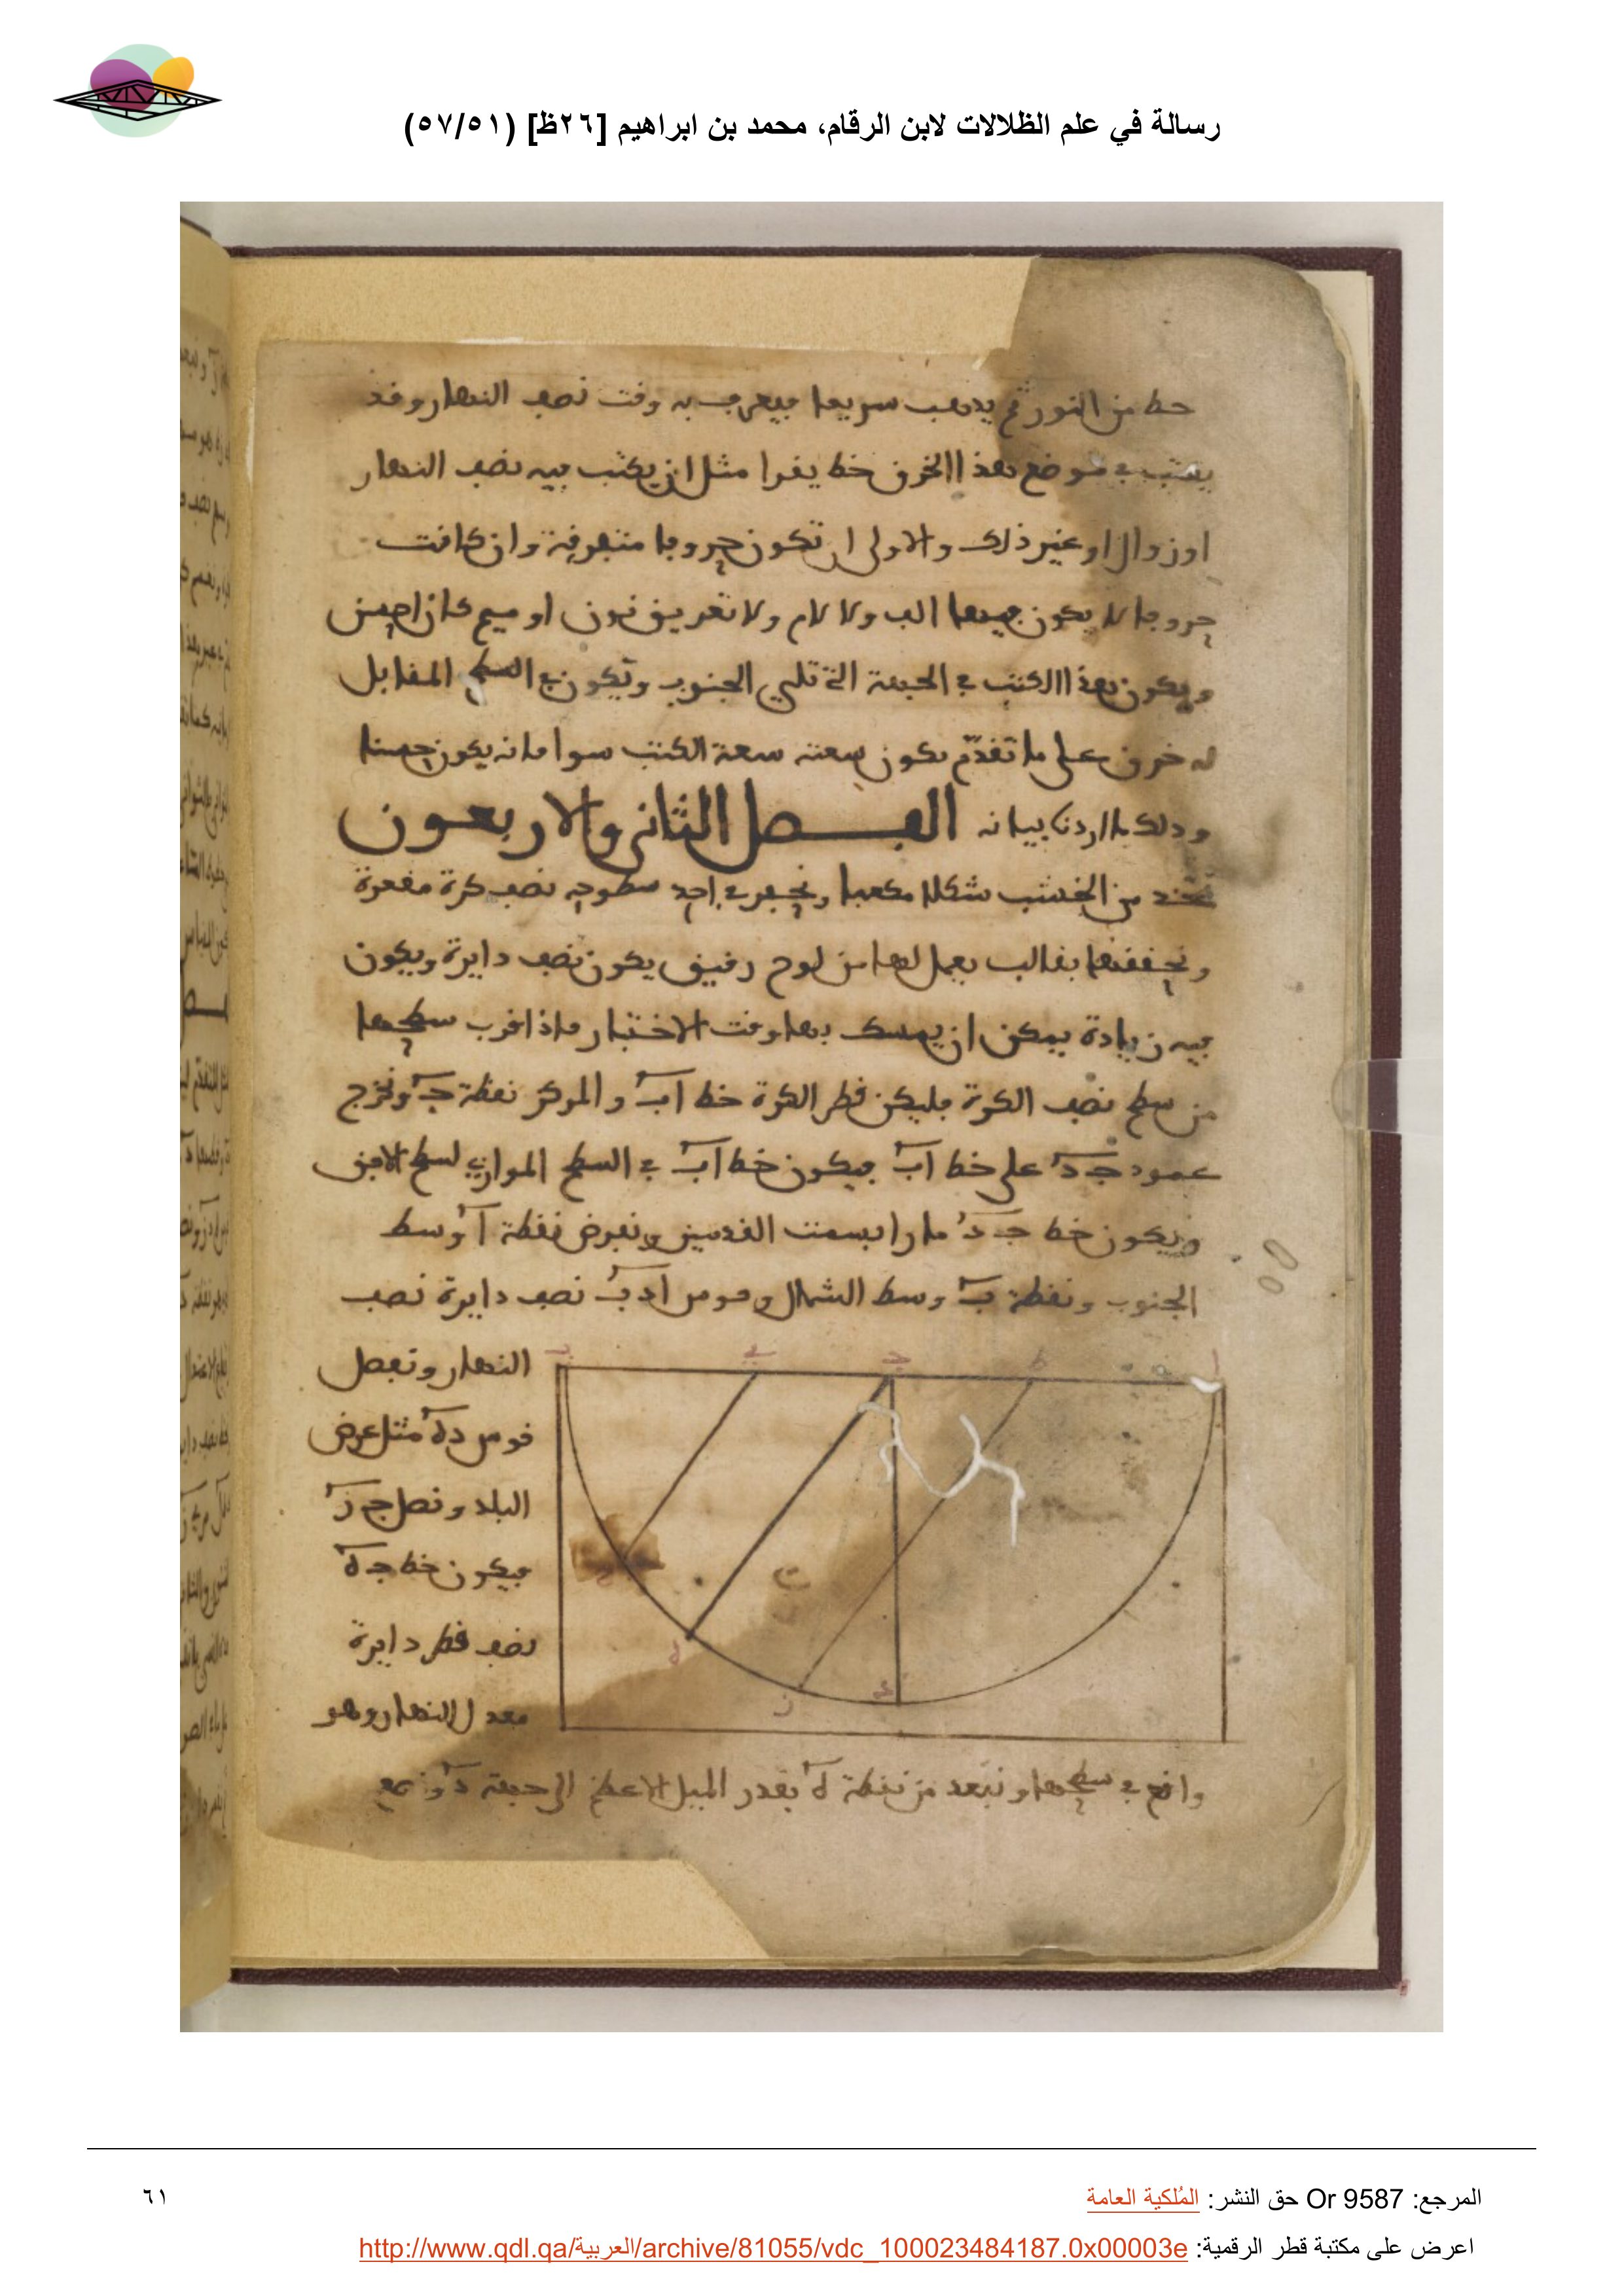 رسالة في علم الظلالات لابن الرقام، محمد بن ابراهيم [٢٦ظ] (٥٧/٥١)
خط من النور ثم يذهب سريعا فيعرف به وقت نصف النهار وقد
يكتب في موضع هذا الخرق خط يقرا مثل ان يكتب فيه نصف النهار
او زوال او غير ذلك والاولى ان تكون حروفا متفرقة وان كانت
حروفا لا يكون فيها الف ولا لام ولا تعريف نون او ميم كان احسن
ويكون هذا الكتب في الجهة التي تلي الجنوب ويكون في السطح المقابل
له خرق على ما تقدم تكون سعته سعة الكتب سوا فانه يكون حسنا
وذلك ما اردنا بيانه الفصل الثاني والاربعون
نتخذ من الخشب شكلا مكعبا ونحفر في احد سطوحه نصف كرة مقعرة
ونحققها بقالب يعمل لها من لوح رقيق يكون نصف دايرة ويكون
فيه زيادة يمكن ان يمسك بها وقت الاختبار فاذا قرب سطحها
من سطح نصف الكرة فليكن قطر الكرة خط اب والمركز نقطة ج ونخرج
عمود ج د على خط اب فيكون خط اب في السطح الموازي لسطح الافق
ويكون خط ج د مارا بسمت القدمين ونفرض نقطة ا وسط
الجنوب ونقطة ب وسط الشمال وقوس ا د ب نصف دايرة نصف
النهار ونفصل
قوس د ه مثل عرض
البلد ونصل ج ز
فيكون خط ج ه
نصف قطر دايرة
معدل النهار وهو
ا
ط
ج
ب
ه
ز
د
واقع في سطحها ونبعد من نقطة ه بقدر الميل الاعظم الى جهة د
المرجع: Or 9587 حق النشر: المُلكية العامة
٦١
اعرض على مكتبة قطر الرقمية: http://www.qdl.qa/العربية/archive/81055/vdc_100023484187.0x00003e